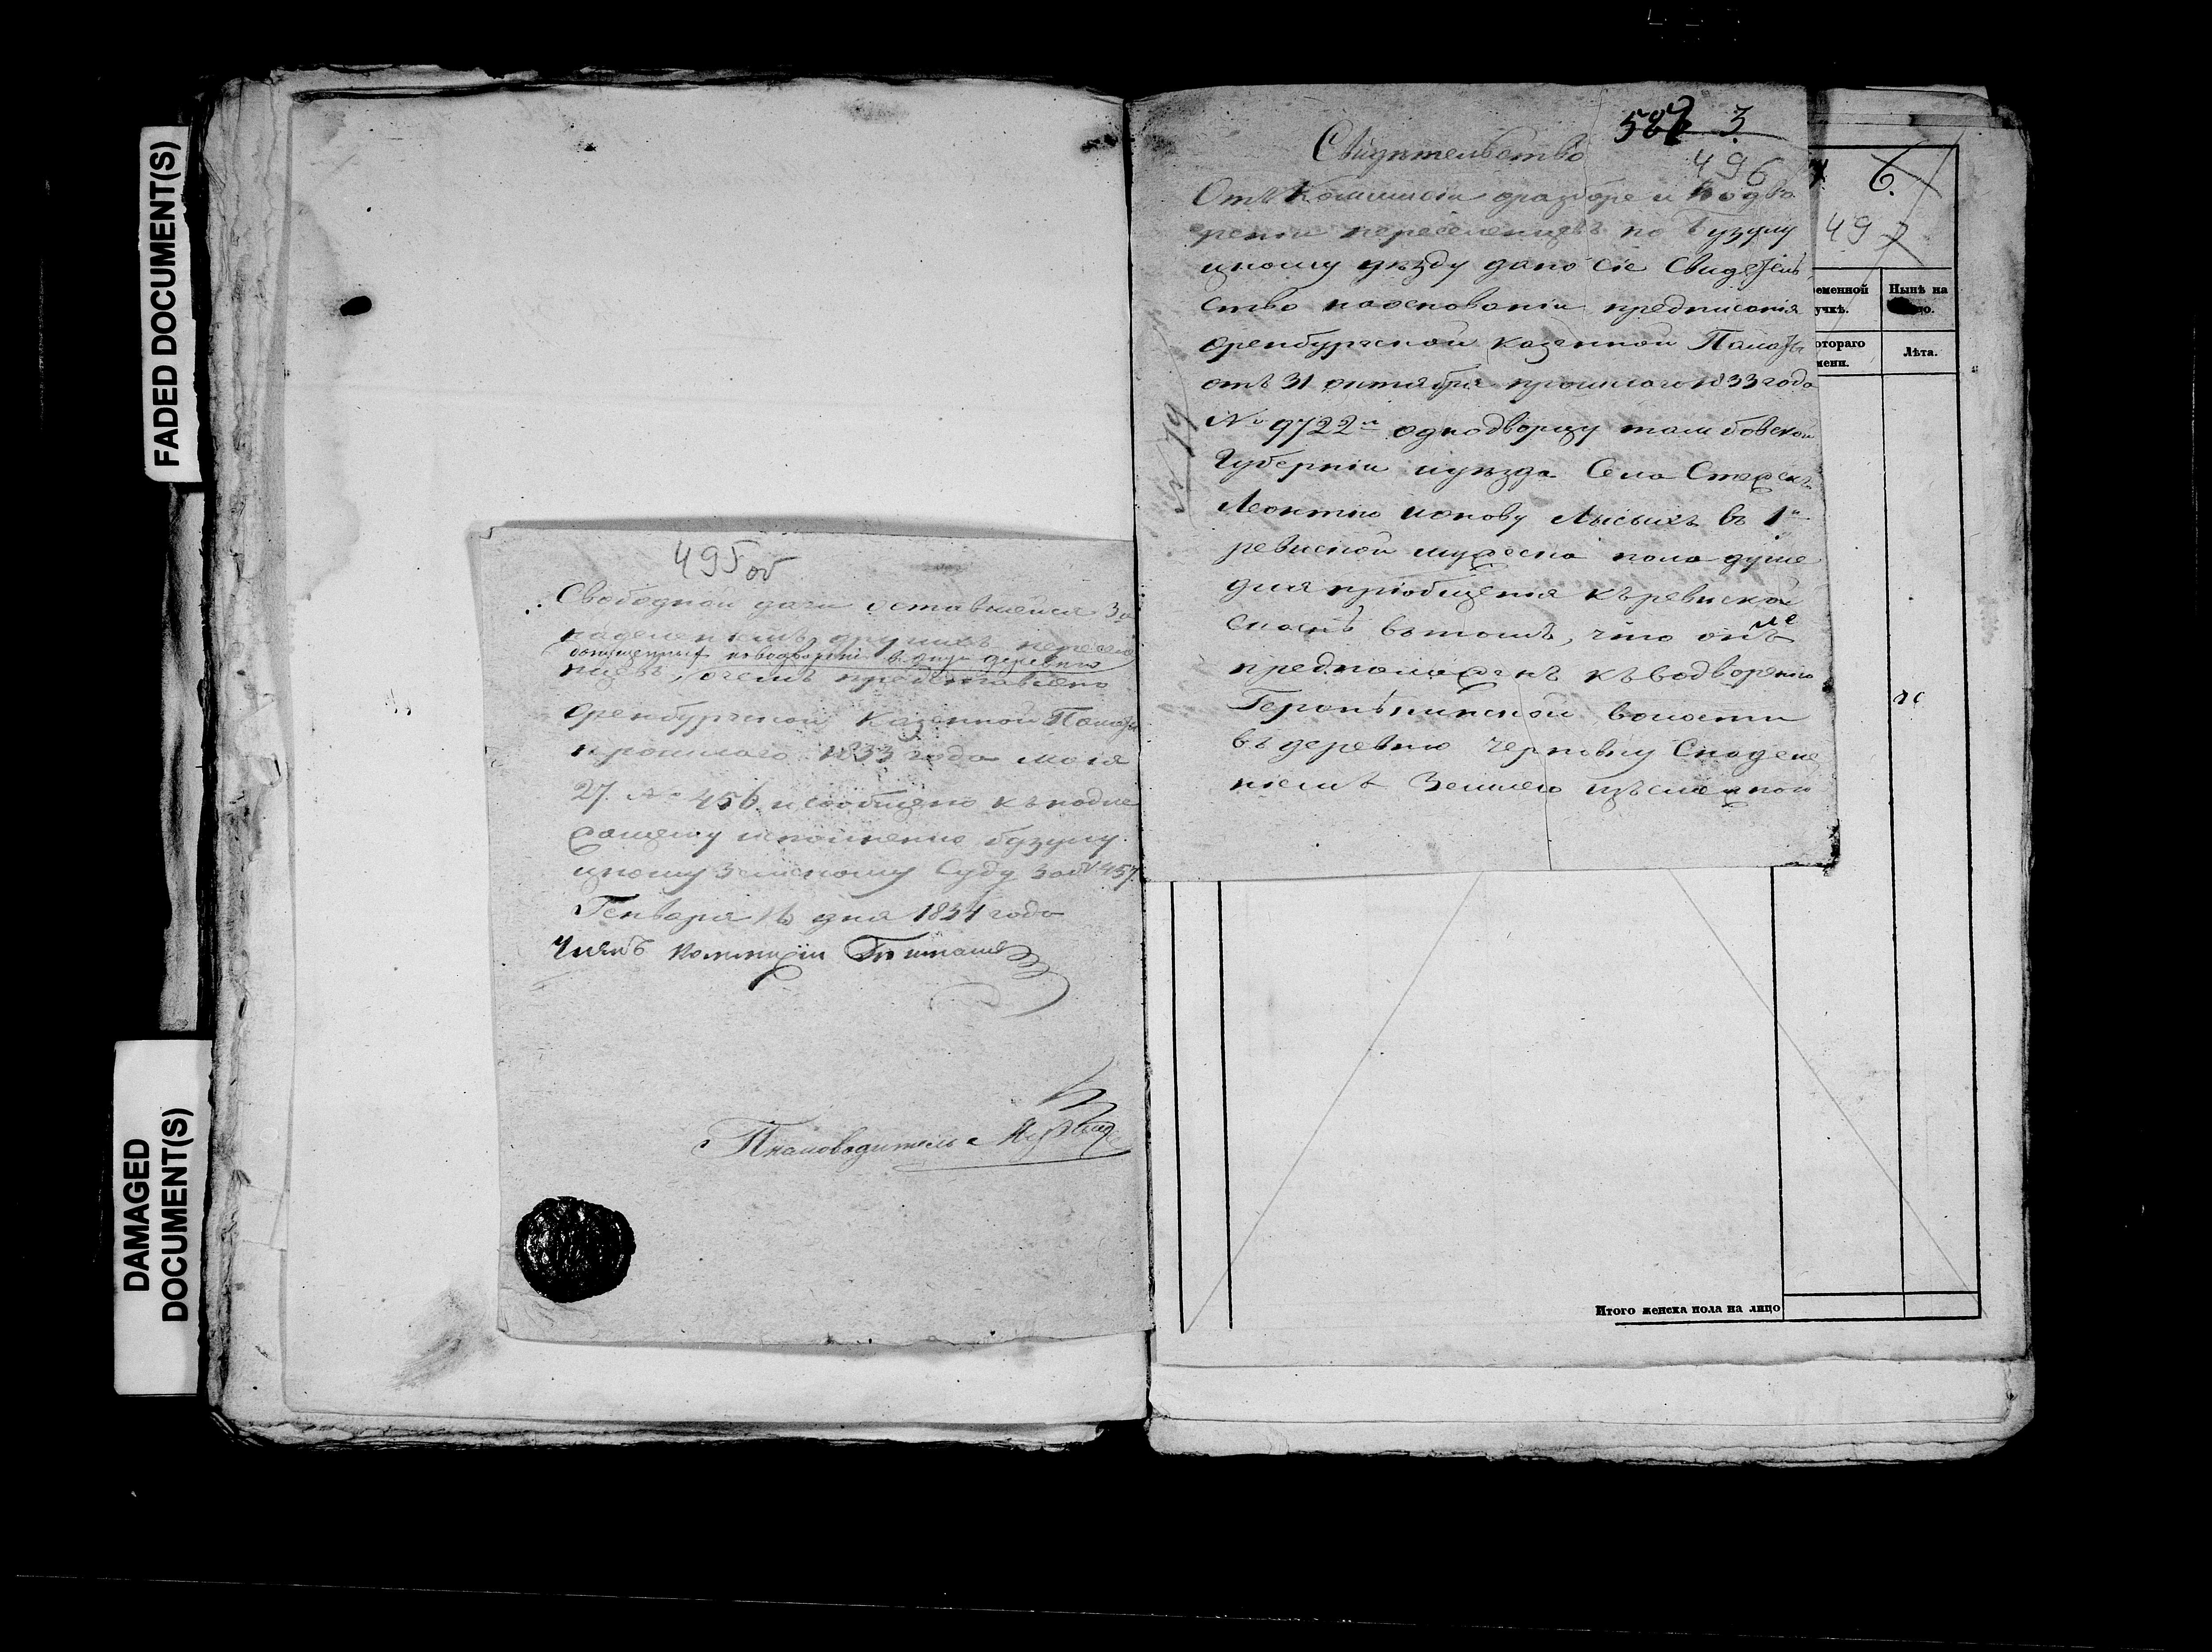 FADED DOCUMENT(S)
DAMAGED
DOCUMENT(S)
495об
Свободной дачи оставшейся за
наделеніемъ другихъ пересе
допущенных новодворні в оную деревню
нцевъ, очемъ представлено
Оренбургской Казенной Палаты
прошлаго 1833 года маія
27. № 456. и сообщено къ надле
жащему исполненію бузулу
цкому Земскому Суду за № 457
Генваря 16 дня 1834 года
Членъ Коммиссіи
Писмоводитель
3
496
Свидѣтельство
Отъ Коммисіи оразборе и Водво
рении переселенцовъ по Бузулу
цкому уѣзду дано сіе Свидетель
ство наосновании предписанія
Оренбургской Казенной Палаты
отъ 31 октября прошлаго 1833 года
№ 9722й однодворцу тамбовской
Губерніи иуезда Села
Леонтию Ионову Лысыхъ въ 1й
ревиской мужеска пола душе
для приобщенія къ ревиской
Сказкѣ въ томъ, что онъ
предположенъ къ водворенію
волости
въ деревню Черновку Снаделе
ніемъ Землею изъ смежной
№ 79
6.
497
еменной
учкѣ.
Нынѣ на
отораго
мени.
Лѣта.
Итого женска пола на лицо